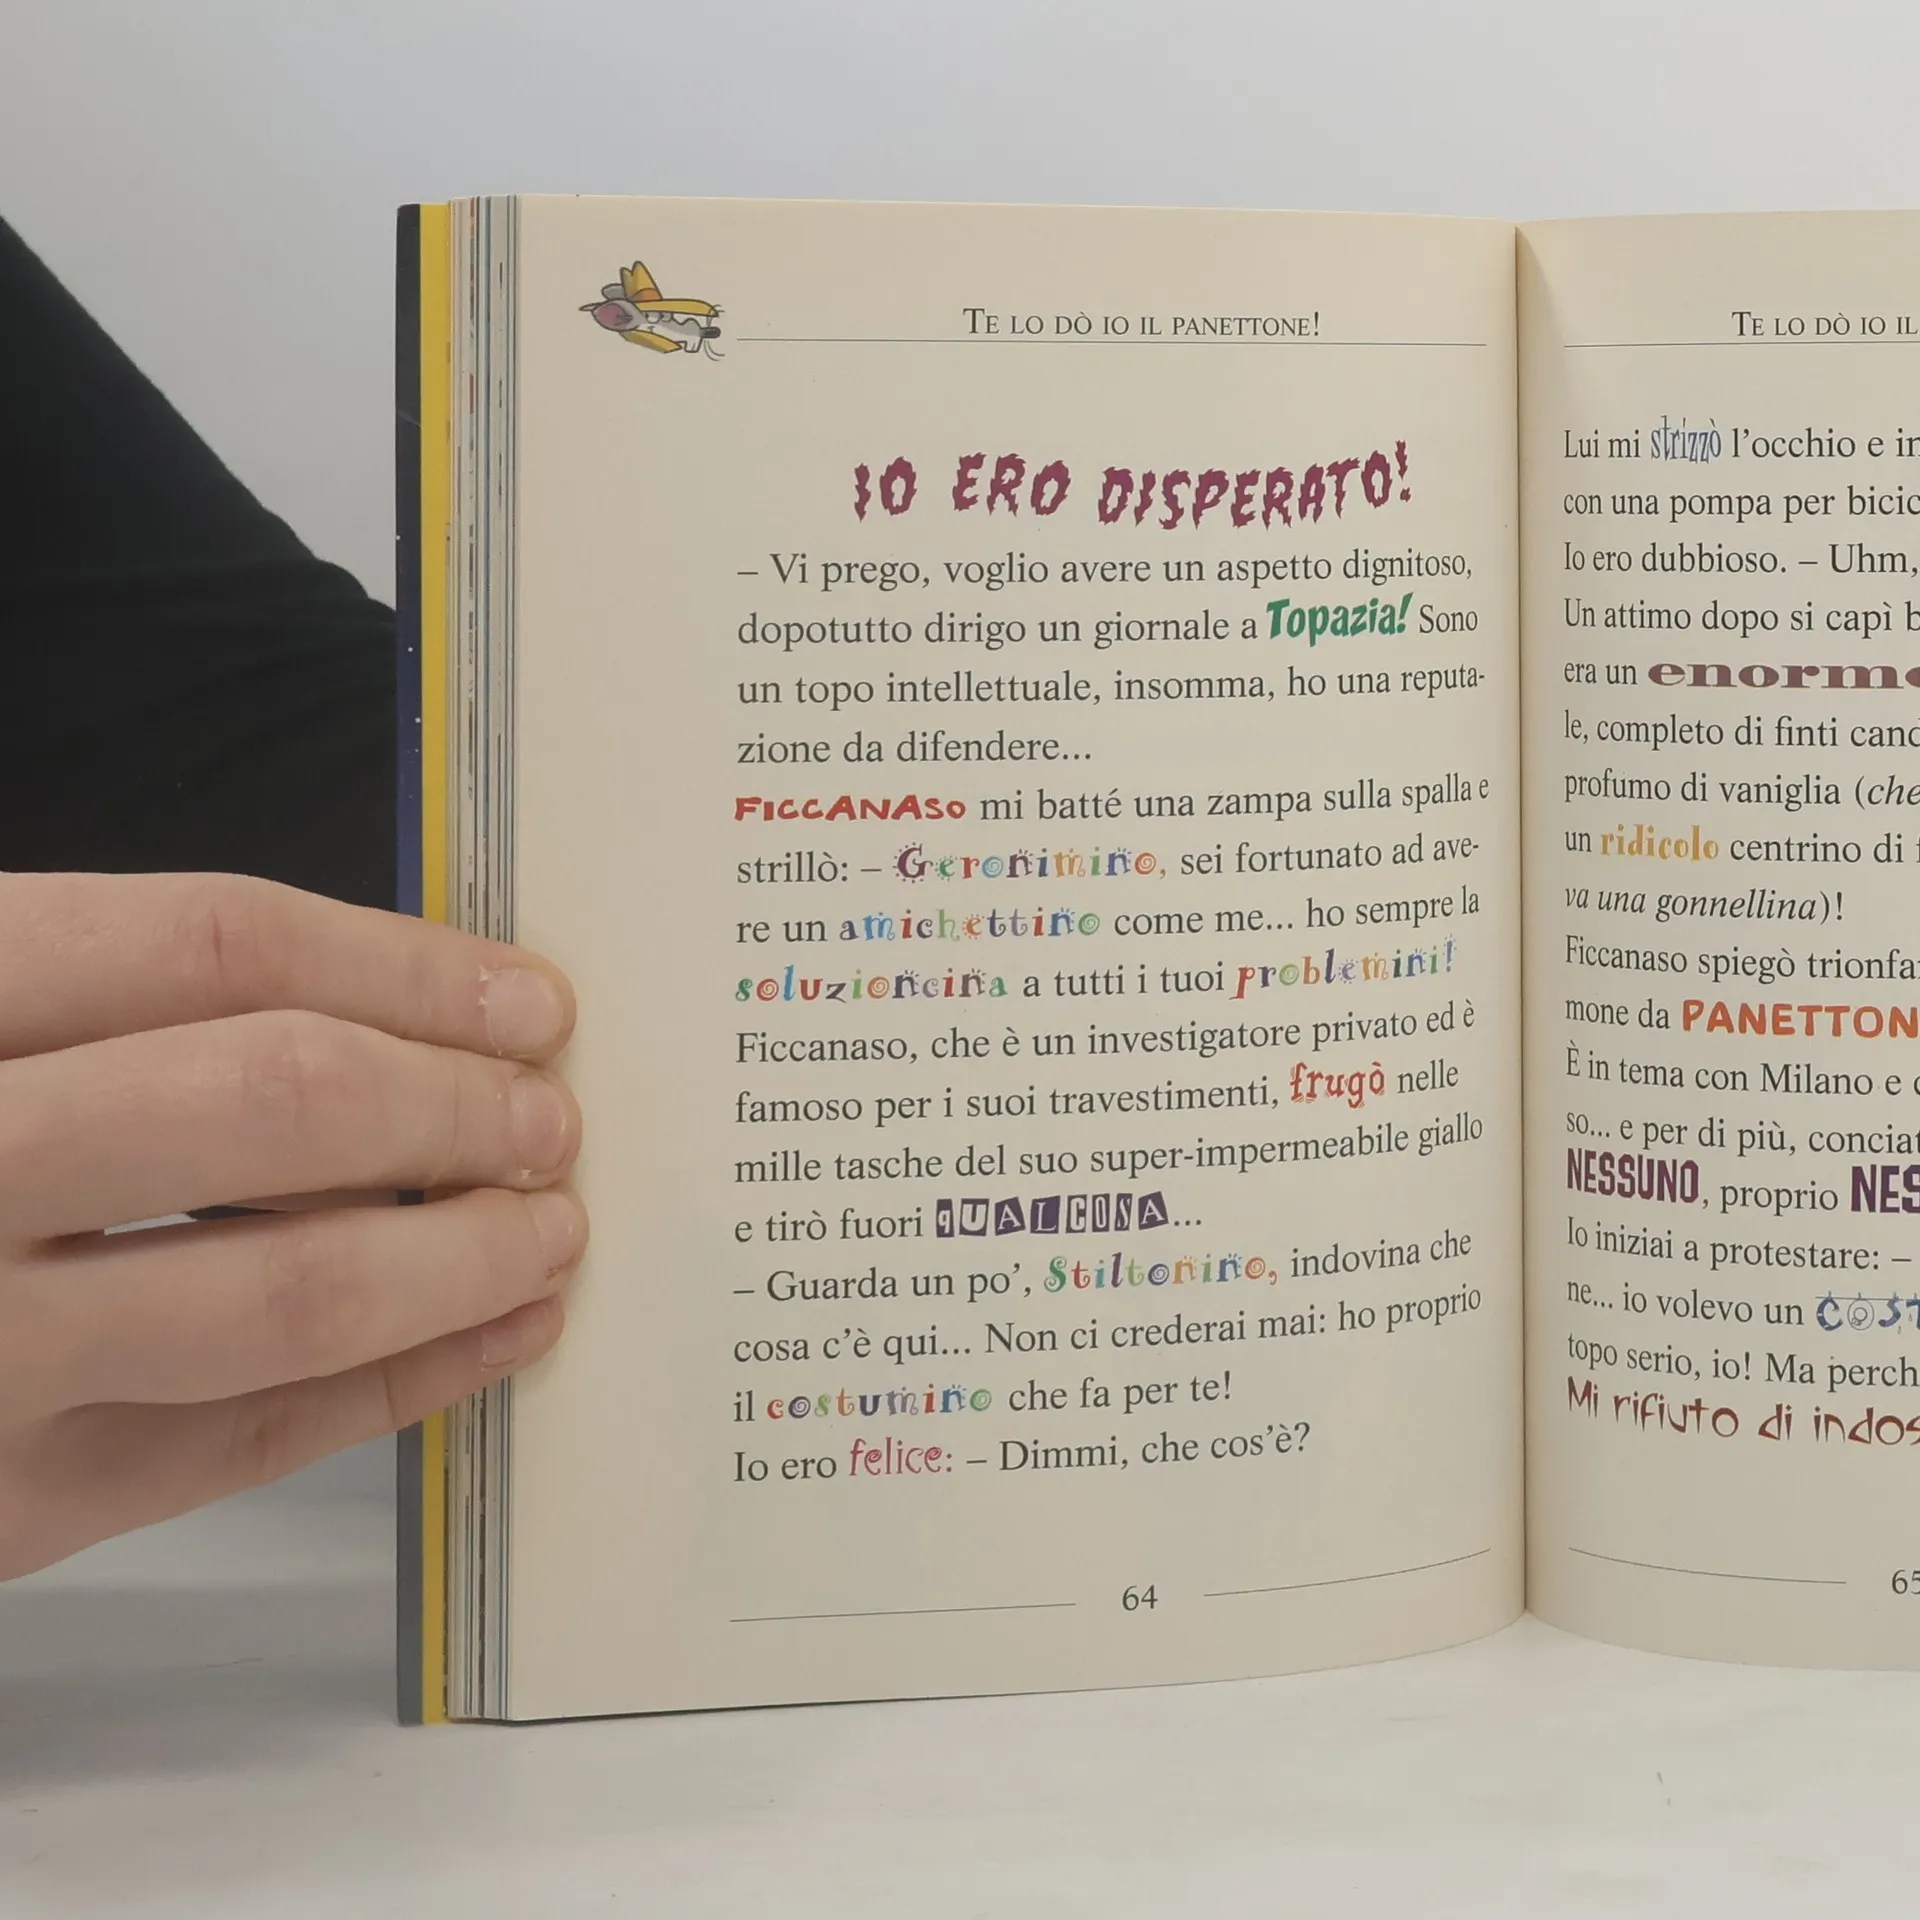 TE LO DÒ IO IL PANETTONE!
IO ERO DISPERATO!
– Vi prego, voglio avere un aspetto dignitoso,
dopotutto dirigo un giornale a Topazia! Sono
un topo intellettuale, insomma, ho una reputa-
zione da difendere...
FICCANASO mi batté una zampa sulla spalla e
strillò: – Geronimino, sei fortunato ad ave-
re un amichettino come me... ho sempre la
soluzioncina a tutti i tuoi problemini!
Ficcanaso, che è un investigatore privato ed è
famoso per i suoi travestimenti, frugò nelle
mille tasche del suo super-impermeabile giallo
e tirò fuori QUALCOSA...
– Guarda un po’, Stiltonino, indovina che
cosa c’è qui... Non ci crederai mai: ho proprio
il costumino che fa per te!
Io ero felice: – Dimmi, che cos’è?
64
TE LO DÒ IO IL
Lui mi strizzò l’occhio e
con una pompa per
Io ero dubbioso. – Uhm,
Un attimo dopo si capì
era un
le, completo di finti
profumo di vaniglia (che
un ridicolo centrino di
va una gonnellina)!
Ficcanaso spiegò
mone da
È in tema con Milano e
so... e per di più,
NESSUNO, proprio
Io iniziai a protestare: –
ne... io volevo un
topo serio, io! Ma
Mi rifiuto di
65